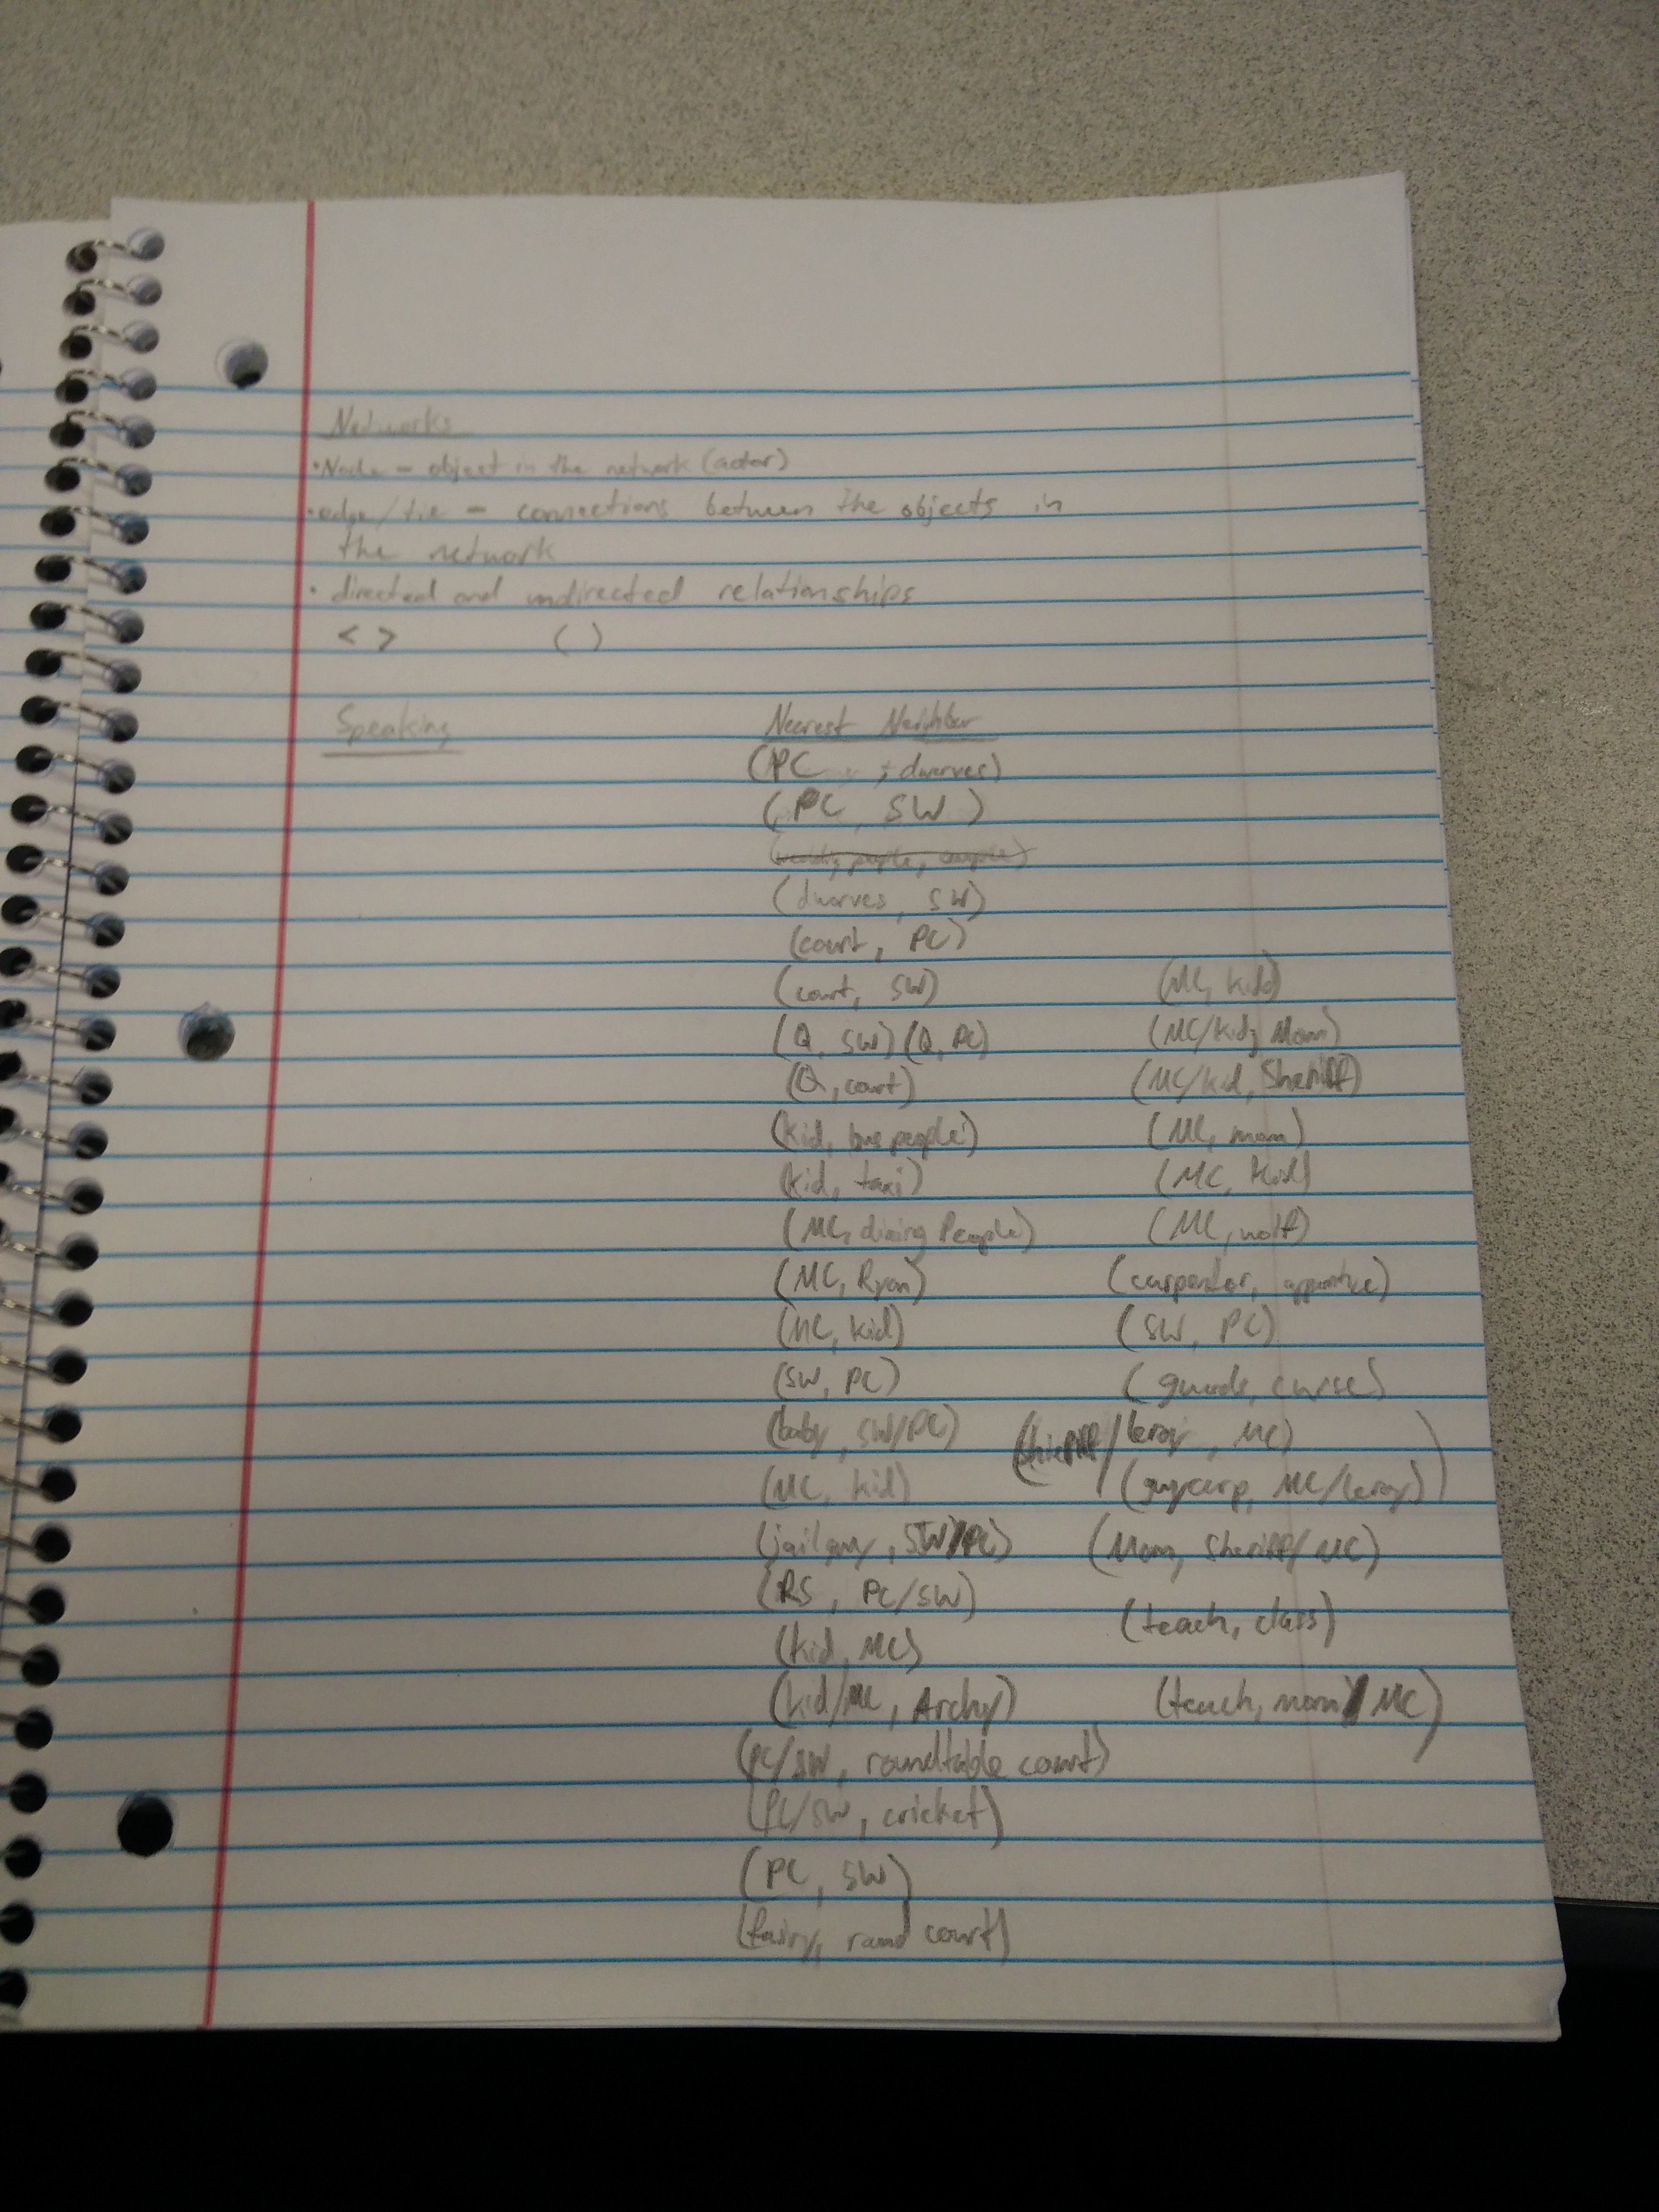 Networks
• Node - object in the network (actor)
• edge/tie - connections between the objects in
the network
• directed and undirected relationships
< > ( )
Speaking
Nearest Neighbor
(PC , dwarves)
(PC, SW)
(dwarves, SW)
(court, PC)
(court, SW)
(Q, SW) (Q, PC)
(Q, court)
(kid, bus people)
(kid, taxi)
(MC, dining People)
(MC, Ryan)
(MC, kid)
(SW, PC)
(baby, SW/PC)
(MC, kid)
(jail guy, SW/PC)
(RS, PC/SW)
(kid, MC)
(kid/MC, Archy)
(PC/SW, roundtable court)
(PC/SW, cricket)
(PC, SW)
(fairy, round court)
(MC, kid)
(MC/kid, Mom)
(MC/kid, Sheriff)
(MC, mom)
(MC, kid)
(MC, wolf)
(carpentor, apprentice)
(SW, PC)
(guards, curse)
(leroy, MC)
(MC/leroy)
(Mom, Sheriff/MC)
(teach, class)
(teach, mom/MC)